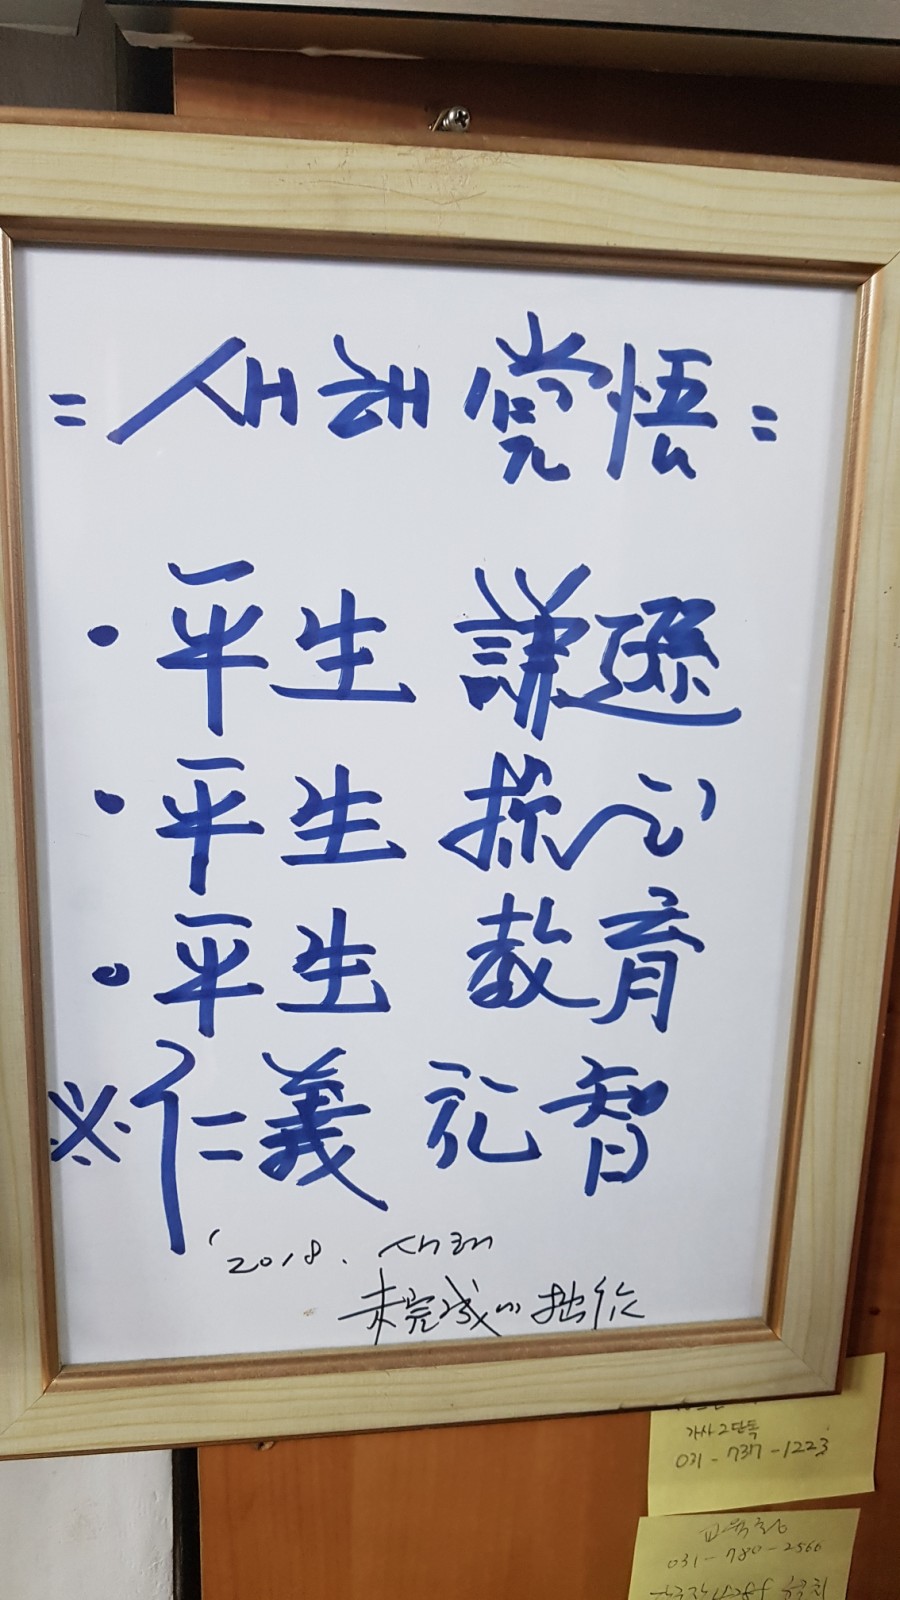 = 새해 覺悟 =
• 平生 謙遜
• 平生 操心
• 平生 敎育
※ 仁義 礼智
'2018. 새해
未完成의 拙作
가사2단독
031-737-1223
교육청
031-780-2566